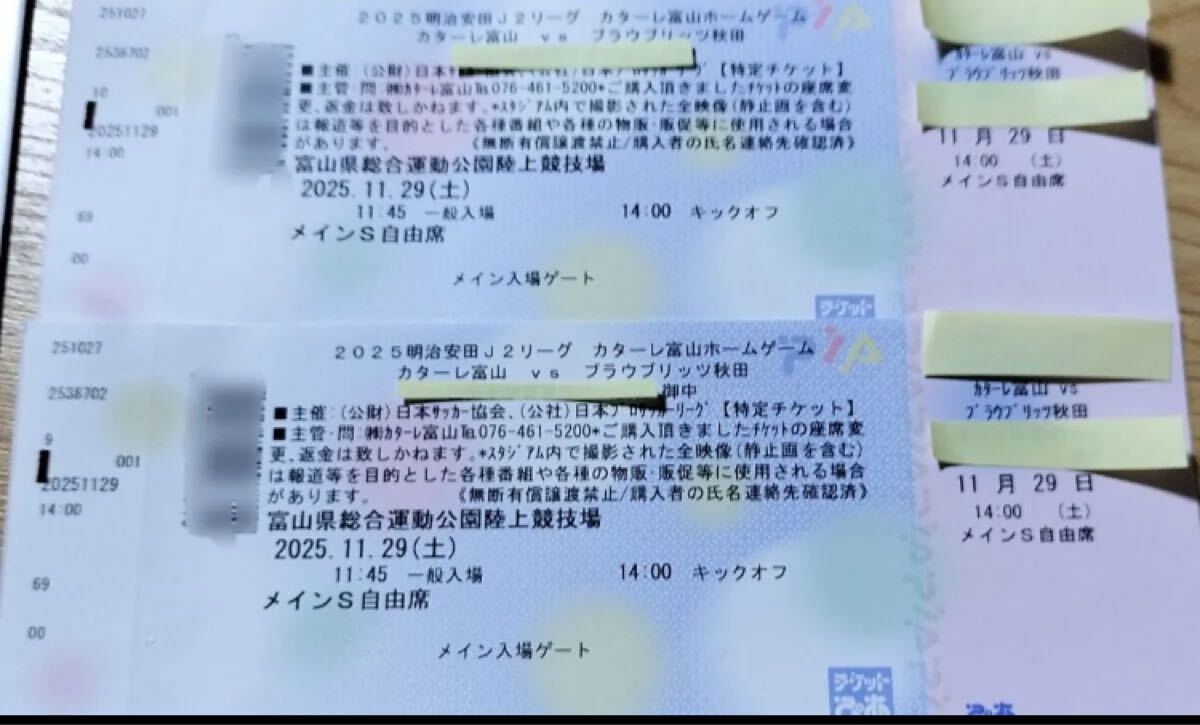 251027
2538702
10
001
20251129
14:00
69
00
2025明治安田J2リーグ カターレ富山ホームゲーム
カターレ富山 vs ブラウブリッツ秋田
■主催:(公財)日本サッカー協会、(公社)日本プロサッカーリーグ【特定チケット】
■主管・問:㈱カターレ富山℡076-461-5200*ご購入頂きましたチケットの座席変
更、返金は致しかねます。*スタジアム内で撮影された全映像(静止画を含む)
は報道等を目的とした各種番組や各種の物販・販促等に使用される場合
があります。 《無断有償譲渡禁止/購入者の氏名連絡先確認済》
富山県総合運動公園陸上競技場
2025.11.29(土)
11:45 一般入場 14:00 キックオフ
メインS自由席
メイン入場ゲート
チケット
カターレ富山 vs
ブラウブリッツ秋田
11月29日
14:00 (土)
メインS自由席
251027
2538702
9
001
20251129
14:00
69
00
2025明治安田J2リーグ カターレ富山ホームゲーム
カターレ富山 vs ブラウブリッツ秋田
御中
■主催:(公財)日本サッカー協会、(公社)日本プロサッカーリーグ【特定チケット】
■主管・問:㈱カターレ富山℡076-461-5200*ご購入頂きましたチケットの座席変
更、返金は致しかねます。*スタジアム内で撮影された全映像(静止画を含む)
は報道等を目的とした各種番組や各種の物販・販促等に使用される場合
があります。 《無断有償譲渡禁止/購入者の氏名連絡先確認済》
富山県総合運動公園陸上競技場
2025.11.29(土)
11:45 一般入場 14:00 キックオフ
メインS自由席
メイン入場ゲート
チケット
ぴあ
カターレ富山 vs
ブラウブリッツ秋田
11月29日
14:00 (土)
メインS自由席
ぴあ